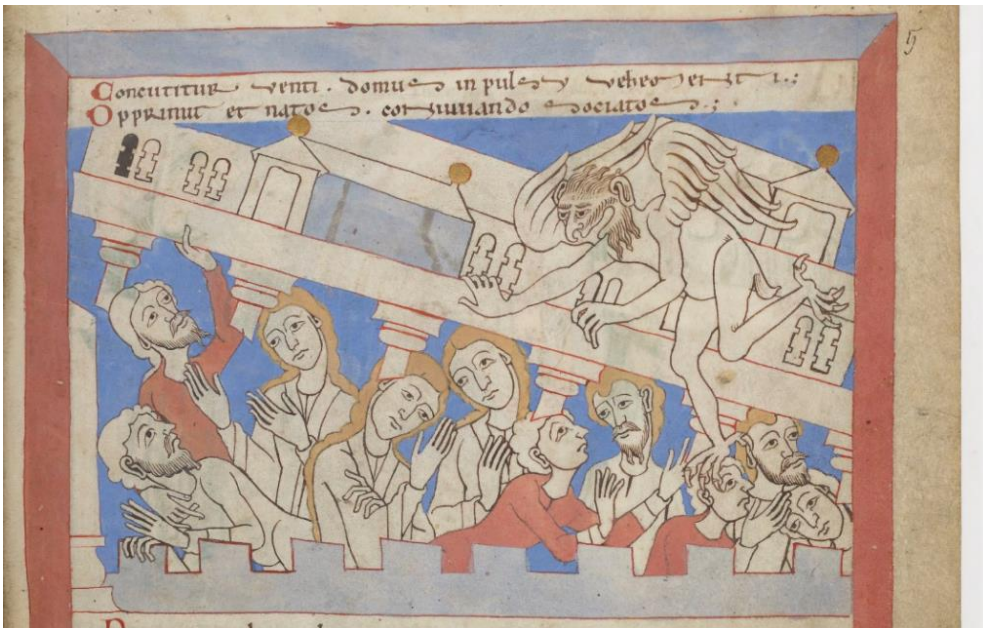 Concutitur venti . domus in pulsu vehementi .;
Opprimit et natos . conuiuando sociatos .;
5